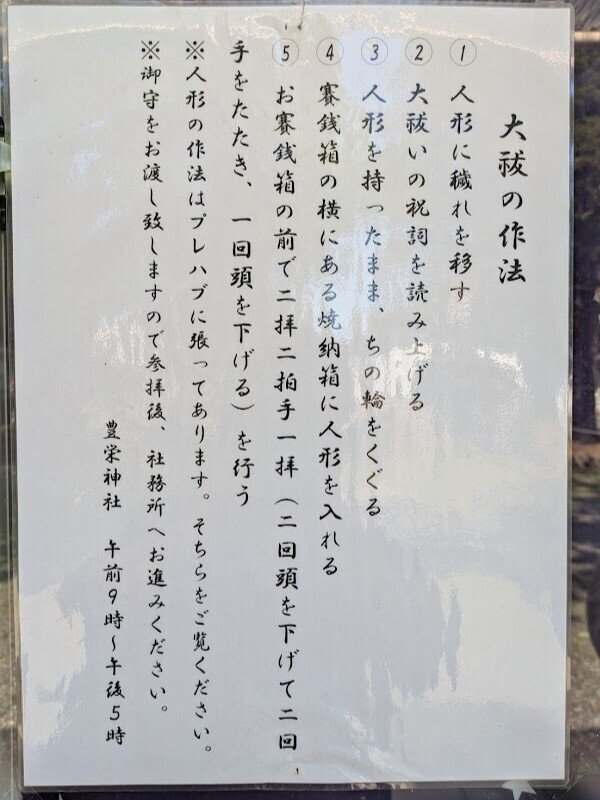 大祓の作法
① 人形に穢れを移す
② 大祓いの祝詞を読み上げる
③ 人形を持ったまま、ちの輪をくぐる
④ 賽銭箱の横にある焼納箱に人形を入れる
⑤ お賽銭箱の前で二拝二拍手一拝（二回頭を下げて二回
手をたたき、一回頭を下げる）を行う
※人形の作法はプレハブに張ってあります。そちらをご覧ください。
※御守をお渡し致しますので参拝後、社務所へお進みください。
豊栄神社 午前9時～午後5時